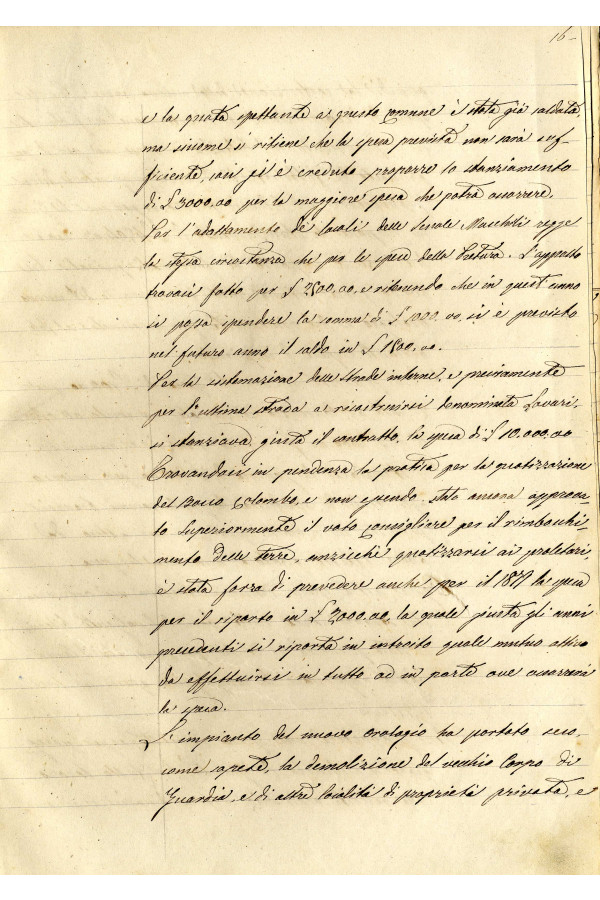 16-
e la quota spettante a questo comune è stata già saldata,
ma siccome si ritiene che la spesa prevista non sarà suf-
ficiente, così si è creduto proporre lo stanziamento
di £ 3000,00 per la maggiore spesa che potrà occorrere.
Per l'adattamento de' locali delle Scuole Maschili regge
la stessa circostanza che per le spese della Pretura. L'appalto
trovasi fatto per £ 2500,00, e ritenendo che in quest'anno
si possa spendere la somma di £ 1000,00, si è previsto
nel futuro anno il saldo in £ 1500,00.
Per la sistemazione delle strade interne, e precisamente
per l'ultima strada a ricostruirsi denominata Lavari,
si stanziava giusta il contratto, la spesa di £ 10,000,00
Trovandosi in pendenza la pratica per la quotizzazione
del Bosco Colombo, e non essendo stato ancora approva
to superiormente il voto consigliare per il rimboschi-
mento delle terre, anzicchè quotizzarsi ai proletari,
è stata forza di prevedere anche per il 1877 la spesa
per il riparto in £ 2000,00, la quale giusta gli anni
precedenti si riporta in introito quale mutuo attivo
da effettuirsi in tutto od in parte ove occorrerà
la spesa.
L'impianto del nuovo orologio ha portato seco,
come sapete, la demolizione del vecchio Corpo di
Guardia, e di altre località di proprietà privata, e